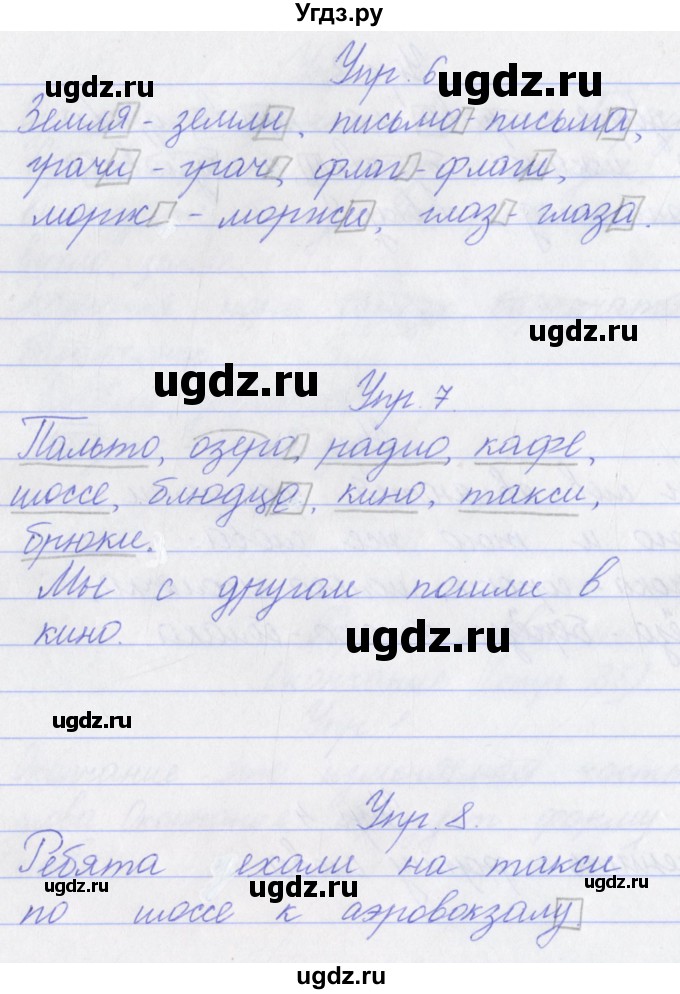 Угдз.ру
Упр. 6
Земля - земли, письмо - письма,
грачи - грач, флаг - флаги,
морж - моржи, глаз - глаза.
Упр. 7.
Пальто, озеро, радио, кафе,
шоссе, блюдца, кино, такси,
брюки.
Мы с другом пошли в
кино.
Упр. 8.
Ребята ехали на такси
по шоссе к аэровокзалу.
ugdz.ru
ugdz.ru
ugdz.ru
ugdz.ru
ugdz.ru
ugdz.ru
ugdz.ru
ugdz.ru
ugdz.ru
ugdz.ru
ugdz.ru
ugdz.ru
ugdz.ru